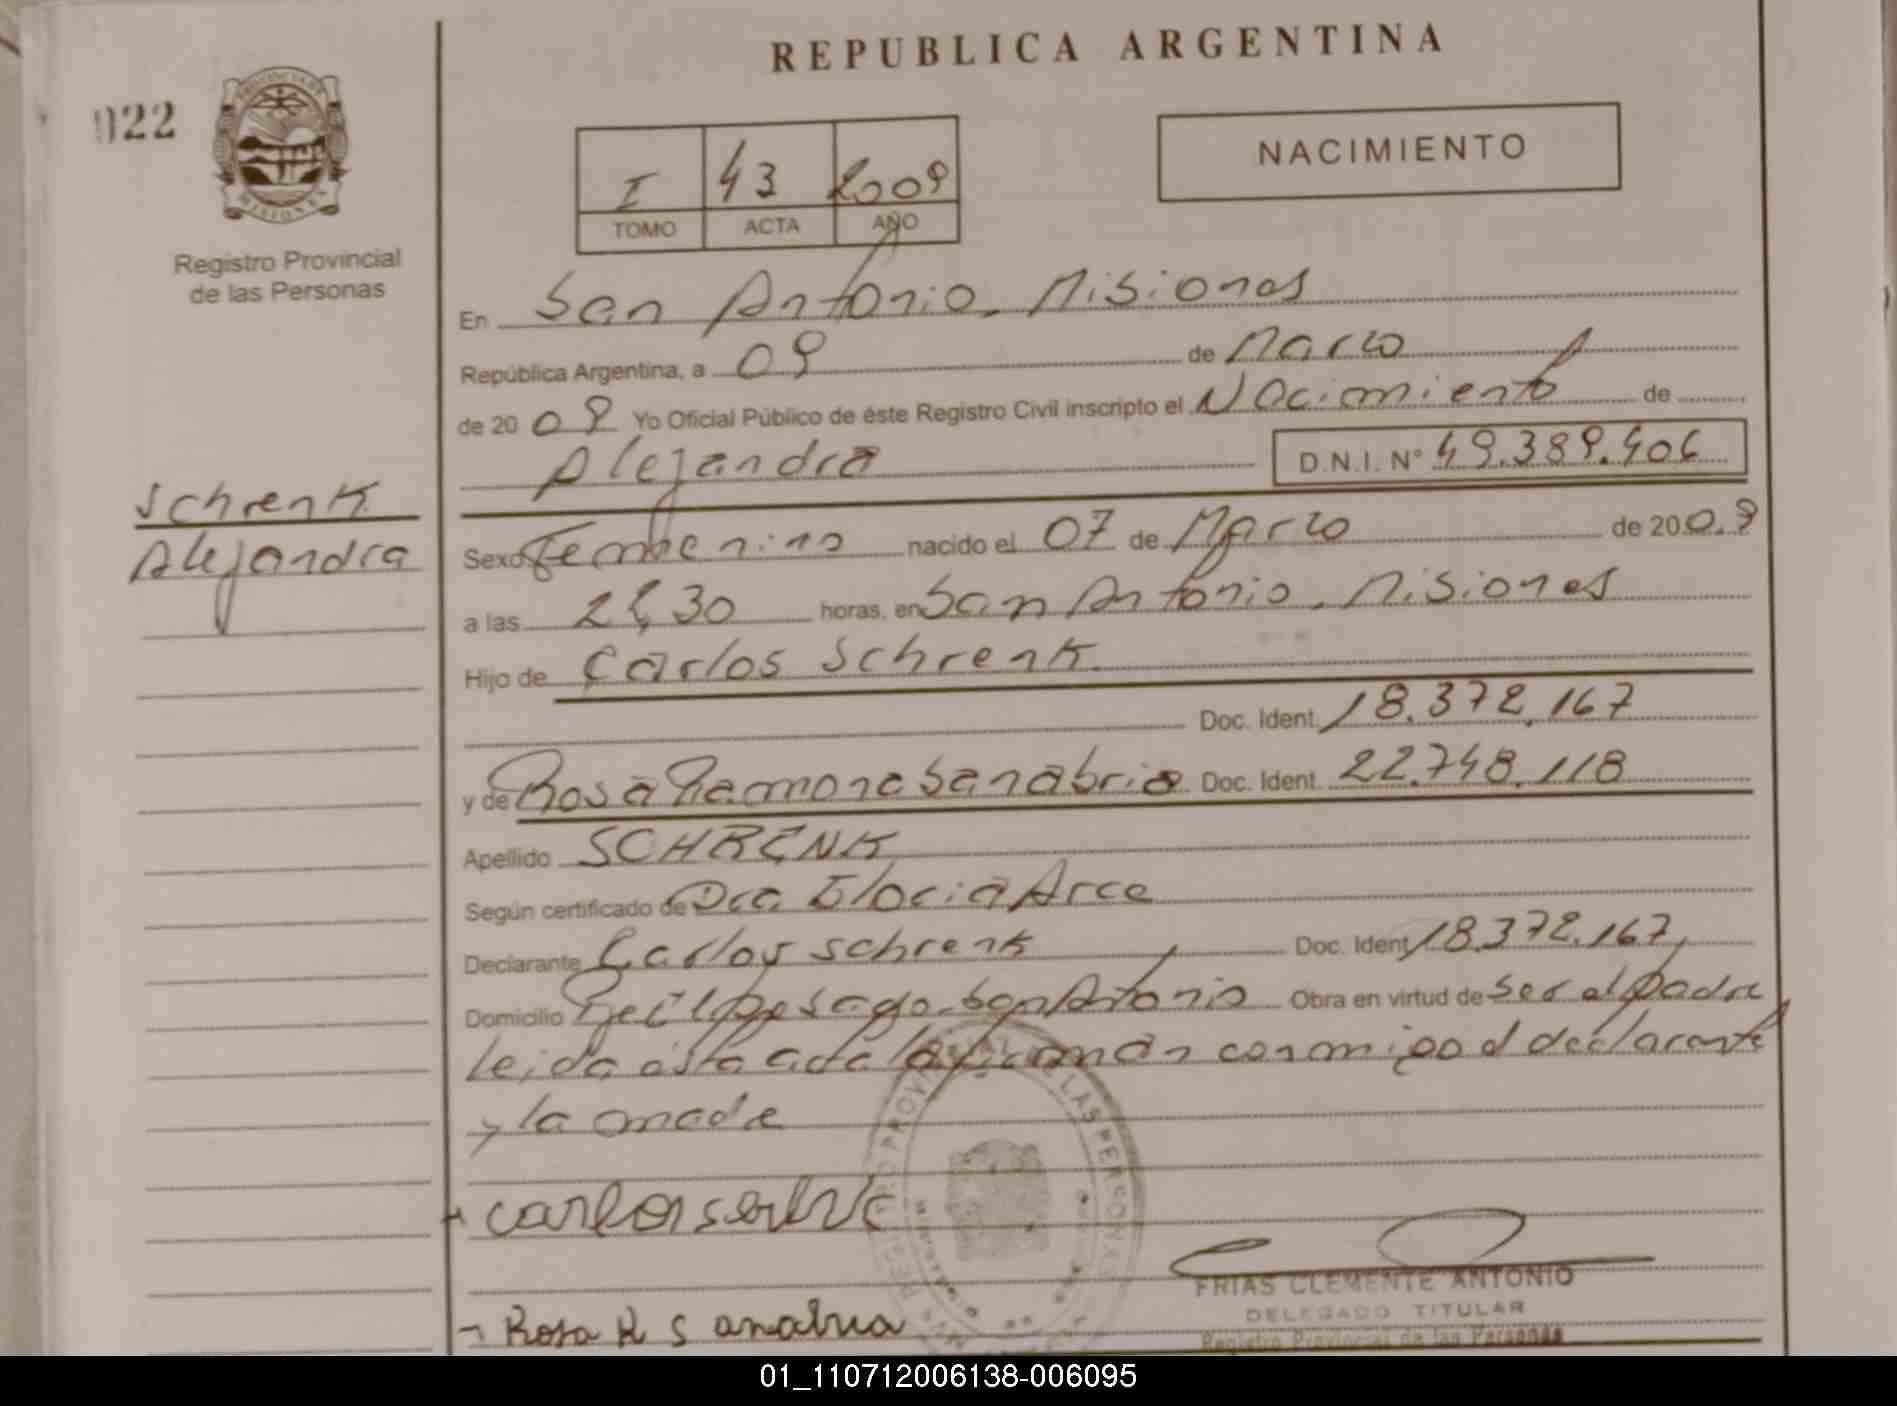 REPUBLICA ARGENTINA
022
PROVINCIA DE
MISIONES
Registro Provincial
de las Personas
NACIMIENTO
I 43 2009
TOMO ACTA AÑO
En San Antonio, Misiones
República Argentina, a 09 de Marzo
de 2009 Yo Oficial Público de éste Registro Civil inscripto el Nacimiento de
Alejandra D.N.I. N° 49.389.406
Schrenk
Alejandra
Sexo Femenino nacido el 07 de Marzo de 2009
a las 30 horas, en San Antonio, Misiones
Hijo de Carlos Schrenk
Doc. Ident. 18.372.167
y de Rosa Ramona Sanabria Doc. Ident. 22.748.118
Apellido SCHRENK
Según certificado de Dra Arce
Declarante Carlos Schrenk Doc. Ident. 18.372.167,
Domicilio San Antonio Obra en virtud de ser el padre
leida esta acta la firman conmigo el declarante
y la madre
Carlos
Rosa R Sanabria
FRIAS CLEMENTE ANTONIO
DELEGADO TITULAR
Registro Provincial de las Personas
LAS PERSONAS
01_110712006138-006095